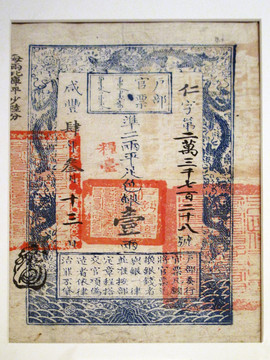 戶部
官票
仁字第二萬三千七百二十八號
準二兩平足色銀壹兩
咸豐肆年叁月十三日
每兩比庫平少陸分
戶部奏行
官票凡願
將官票兌
換銀錢者
與銀一律
並准按部
定章程搭
交官項偽
造者依律
治罪不貸